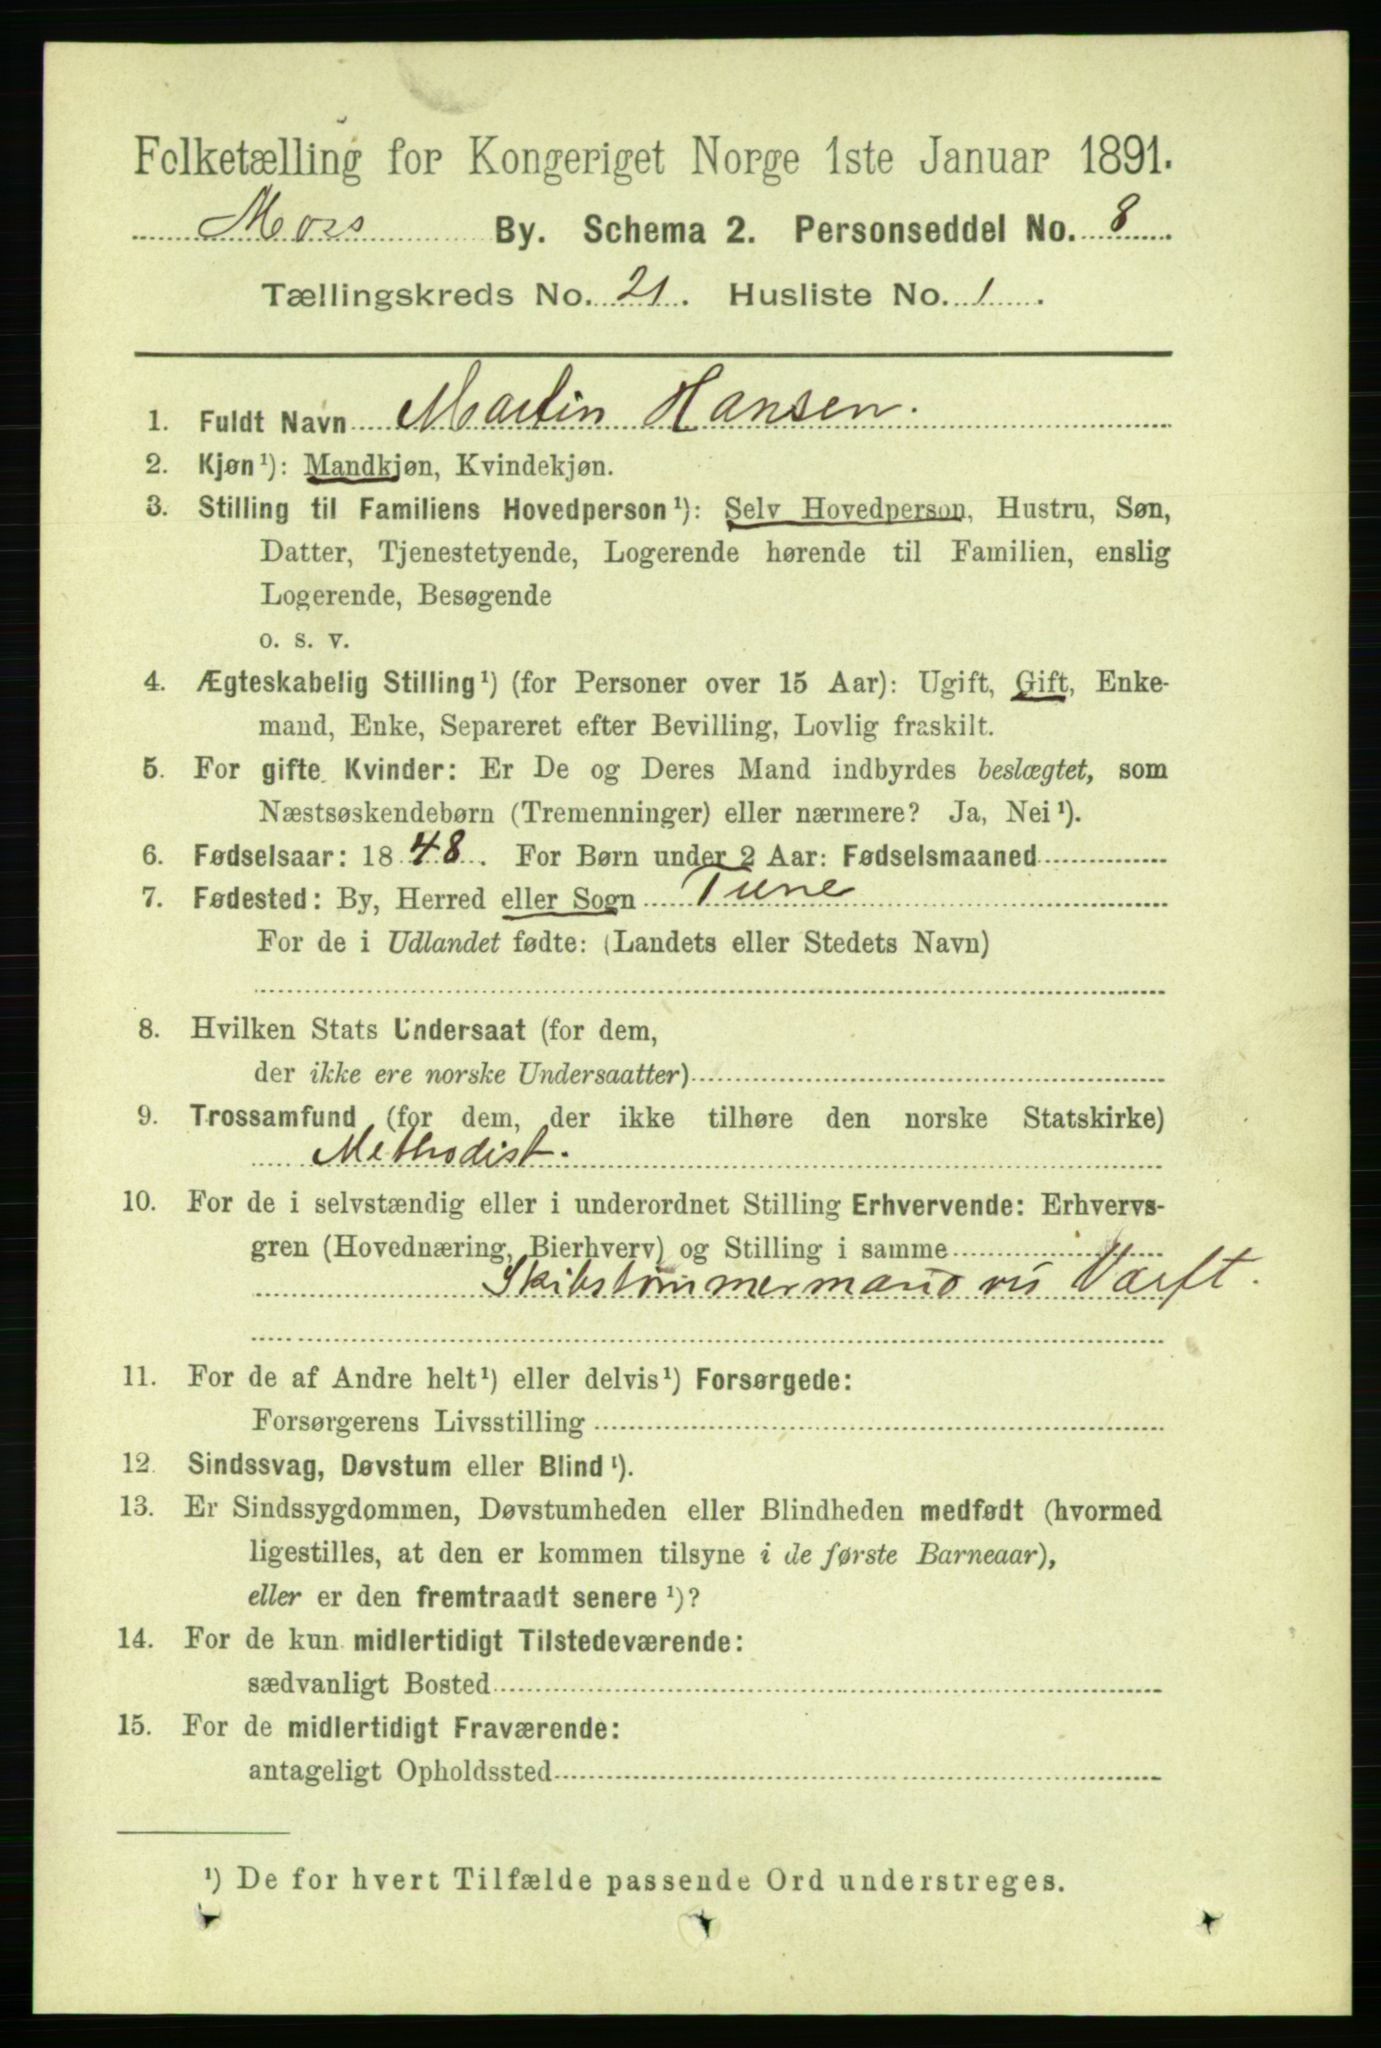 Folketælling for Kongeriget Norge 1ste Januar 1891.
Moss By. Schema 2. Personseddel No. 8
Tællingskreds No. 21. Husliste No. 1.
1. Fuldt Navn Martin Hansen.
2. Kjøn¹): Mandkjøn, Kvindekjøn.
3. Stilling til Familiens Hovedperson¹): Selv Hovedperson, Hustru, Søn,
Datter, Tjenestetyende, Logerende hørende til Familien, enslig
Logerende, Besøgende
o. s. v.
4. Ægteskabelig Stilling¹) (for Personer over 15 Aar): Ugift, Gift, Enke-
mand, Enke, Separeret efter Bevilling, Lovlig fraskilt.
5. For gifte Kvinder: Er De og Deres Mand indbyrdes beslægtet, som
Næstsøskendebørn (Tremenninger) eller nærmere? Ja, Nei¹).
6. Fødselsaar: 1848. For Børn under 2 Aar: Fødselsmaaned
7. Fødested: By, Herred eller Sogn Tune
For de i Udlandet fødte: (Landets eller Stedets Navn)
8. Hvilken Stats Undersaat (for dem,
der ikke ere norske Undersaatter)
9. Trossamfund (for dem, der ikke tilhøre den norske Statskirke)
Methodist.
10. For de i selvstændig eller i underordnet Stilling Erhvervende: Erhvervs-
gren (Hovednæring, Bierhverv) og Stilling i samme
Skibstømmermand Værft.
11. For de af Andre helt¹) eller delvis¹) Forsørgede:
Forsørgerens Livsstilling
12. Sindssvag, Døvstum eller Blind¹).
13. Er Sindssygdommen, Døvstumheden eller Blindheden medfødt (hvormed
ligestilles, at den er kommen tilsyne i de første Barneaar),
eller er den fremtraadt senere¹)?
14. For de kun midlertidigt Tilstedeværende:
sædvanligt Bosted
15. For de midlertidigt Fraværende:
antageligt Opholdssted
¹) De for hvert Tilfælde passende Ord understreges.